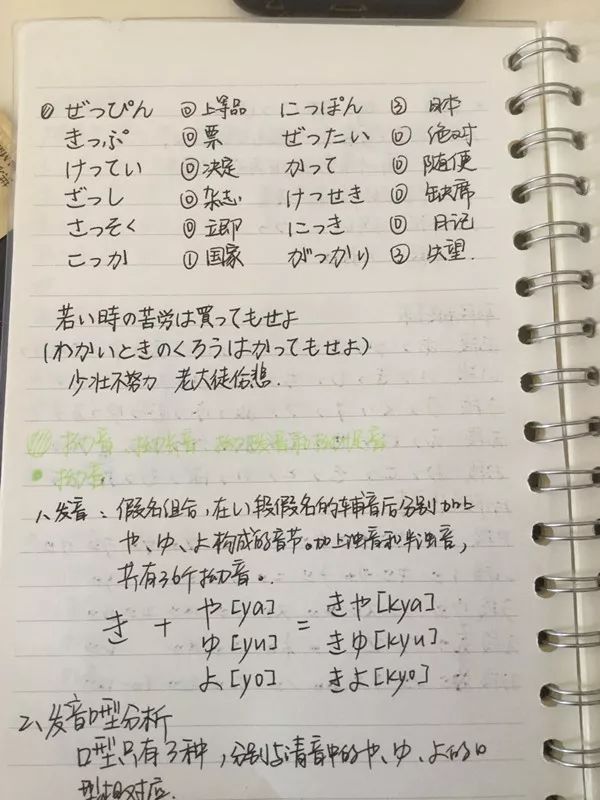 ① ぜっぴん ⓪ 上等品 にっぽん ③ 日本
きっぷ ⓪ 票 ぜったい ⓪ 绝对
けってい ⓪ 决定 かって ⓪ 随便
ざっし ⓪ 杂志 けっせき ⓪ 缺席
さっそく ⓪ 立即 にっき ⓪ 日记
こっか ① 国家 がっかり ③ 失望.
若い時の苦労は買ってもせよ
(わかいときのくろうはかってもせよ)
少壮不努力 老大徒伤悲.
拗音、拗长音、拗拨音和拗促音
• 拗音
1、发音:假名组合,在い段假名的辅音后分别加上
や、ゆ、よ构成的音节。加上浊音和半浊音,
共有36个拗音。
や[ya] きや[kya]
き + ゆ[yu] = きゆ[kyu]
よ[yo] きよ[kyo]
2、发音口型分析
口型只有3种,分别与清音中的や、ゆ、よ的口
型相对应.